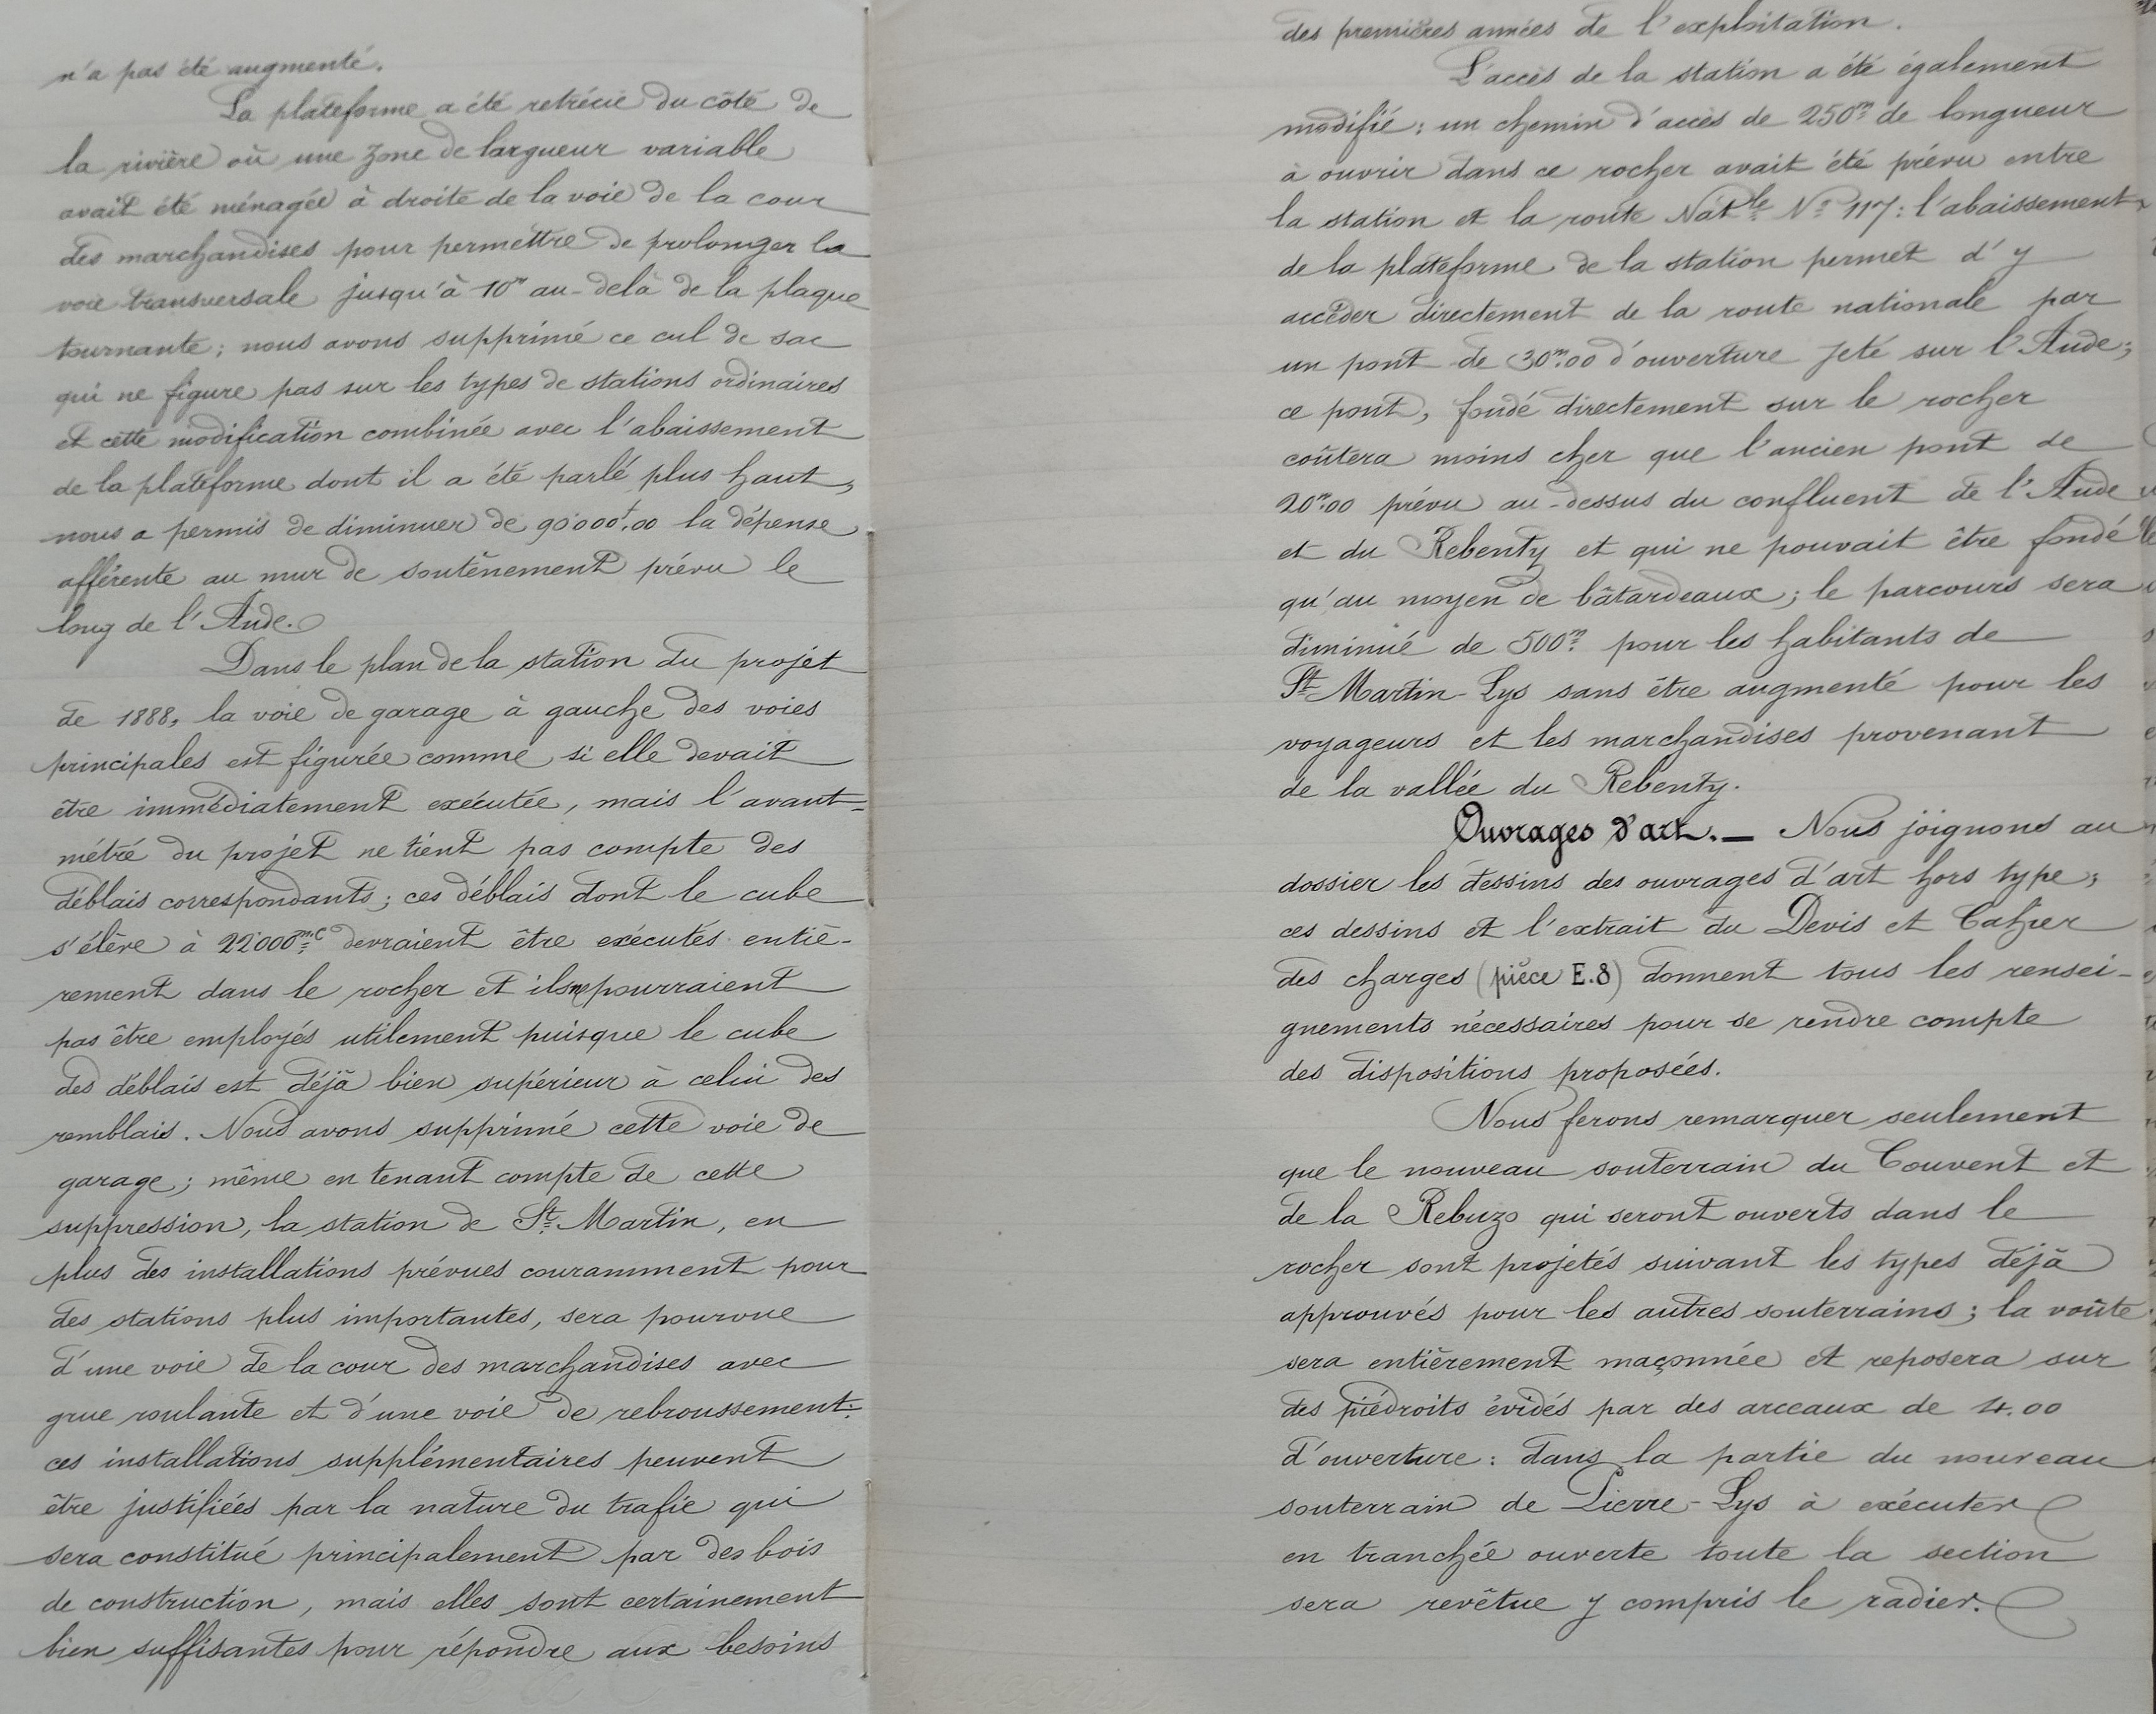 n'a pas été augmenté.
La plateforme a été retrécie du côté de
la rivière où une zone de largueur variable
avait été ménagée à droite de la voie de la cour
des marchandises pour permettre de prolonger la
voie transversale jusqu'à 10m au-delà de la plaque
tournante; nous avons supprimé ce cul de sac
qui ne figure pas sur les types de stations ordinaires
et cette modification combinée avec l'abaissement
de la plateforme dont il a été parlé plus haut,
nous a permis de diminuer de 90'000f,00 la dépense
afférente au mur de soutènement prévu le
long de l'Aude.
Dans le plan de la station du projet
de 1888, la voie de garage à gauche des voies
principales est figurée comme si elle devait
être immédiatement exécutée, mais l'avant-
métré du projet ne tient pas compte des
déblais correspondants; ces déblais dont le cube
s'élève à 22'000m.c devraient être exécutés entiè-
rement dans le rocher et ils ne pourraient
pas être employés utilement puisque le cube
des déblais est déjà bien supérieur à celui des
remblais. Nous avons supprimé cette voie de
garage; même en tenant compte de cette
suppression, la station de St. Martin, en
plus des installations prévues couramment pour
des stations plus importantes, sera pourvue
d'une voie de la cour des marchandises avec
grue roulante et d'une voie de rebroussement:
ces installations supplémentaires peuvent
être justifiées par la nature du trafic qui
sera constitué principalement par des bois
de construction, mais elles sont certainement
bien suffisantes pour répondre aux besoins
des premières années de l'exploitation.
L'accès de la station a été également
modifié: un chemin d'accès de 250m de longueur
à ouvrir dans ce rocher avait été prévu entre
la station et la route Natle No 117: l'abaissement
de la plateforme de la station permet d'y
accéder directement de la route nationale par
un pont de 30m.00 d'ouverture jeté sur l'Aude;
ce pont, fondé directement sur le rocher
coûtera moins cher que l'ancien pont de
20m.00 prévu au-dessus du confluent de l'Aude
et du Rebenty et qui ne pouvait être fondé
qu'au moyen de bâtardeaux; le parcours sera
diminué de 500m pour les habitants de
St-Martin-Lys sans être augmenté pour les
voyageurs et les marchandises provenant
de la vallée du Rebenty.
Ouvrages d'art. — Nous joignons au
dossier les dessins des ouvrages d'art hors type;
ces dessins et l'extrait du Devis et Cahier
des charges (pièce E.8) donnent tous les rensei-
gnements nécessaires pour se rendre compte
des dispositions proposées.
Nous ferons remarquer seulement
que le nouveau souterrain du Couvent et
de la Rebuzo qui seront ouverts dans le
rocher sont projetés suivant les types déjà
approuvés pour les autres souterrains; la voûte
sera entièrement maçonnée et reposera sur
des piédroits évidés par des arceaux de 4.00
d'ouverture: dans la partie du nouveau
souterrain de Pierre-Lys à exécuter
en tranchée ouverte toute la section
sera revêtue y compris le radier.